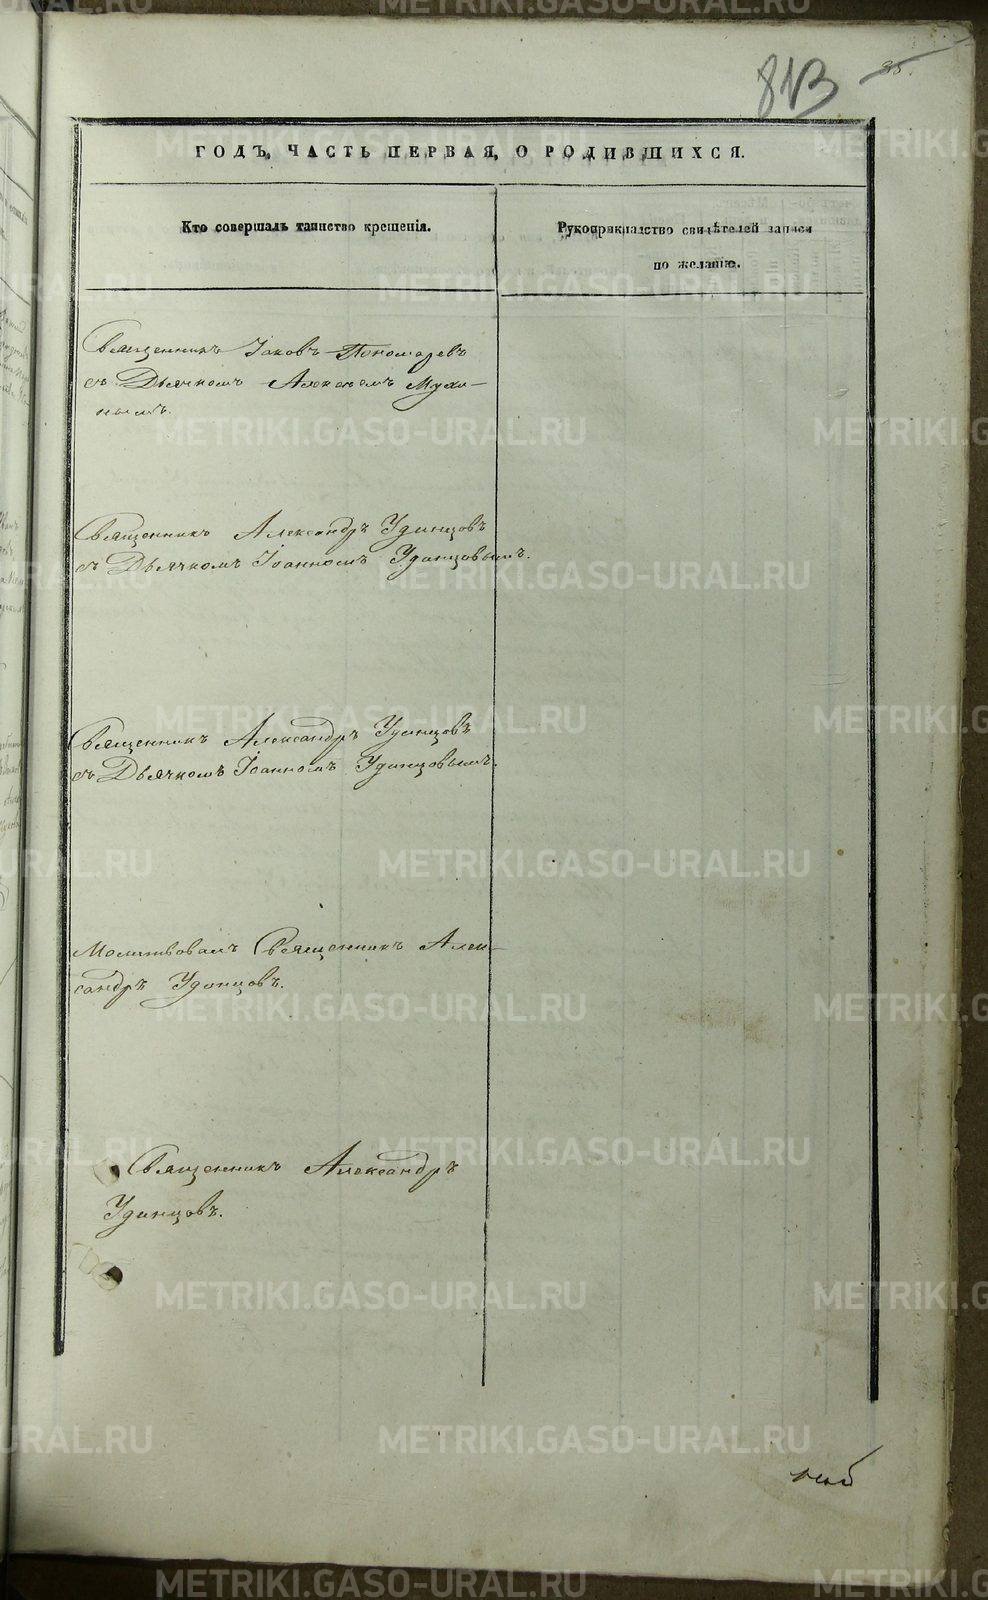 813
85.
ГОДЪ, ЧАСТЬ ПЕРВАЯ, О РОДИВШИХСЯ.
Кто совершалъ таинство крещенія.
Рукоприкладство свидѣтелей записи
по желанію.
Священникъ Іаковъ Пономаревъ
съ Дьячкомъ Алексѣемъ Мухи-
нымъ.
Священникъ Александръ Удинцовъ
съ Дьячкомъ Іоанномъ Удинцовымъ.
Священникъ Александръ Удинцовъ
съ Дьячкомъ Іоанномъ Удинцовымъ.
Молитвовалъ Священникъ Алек-
сандръ Удинцовъ.
Священникъ Александръ
Удинцовъ.
METRIKI.GASO-URAL.RU